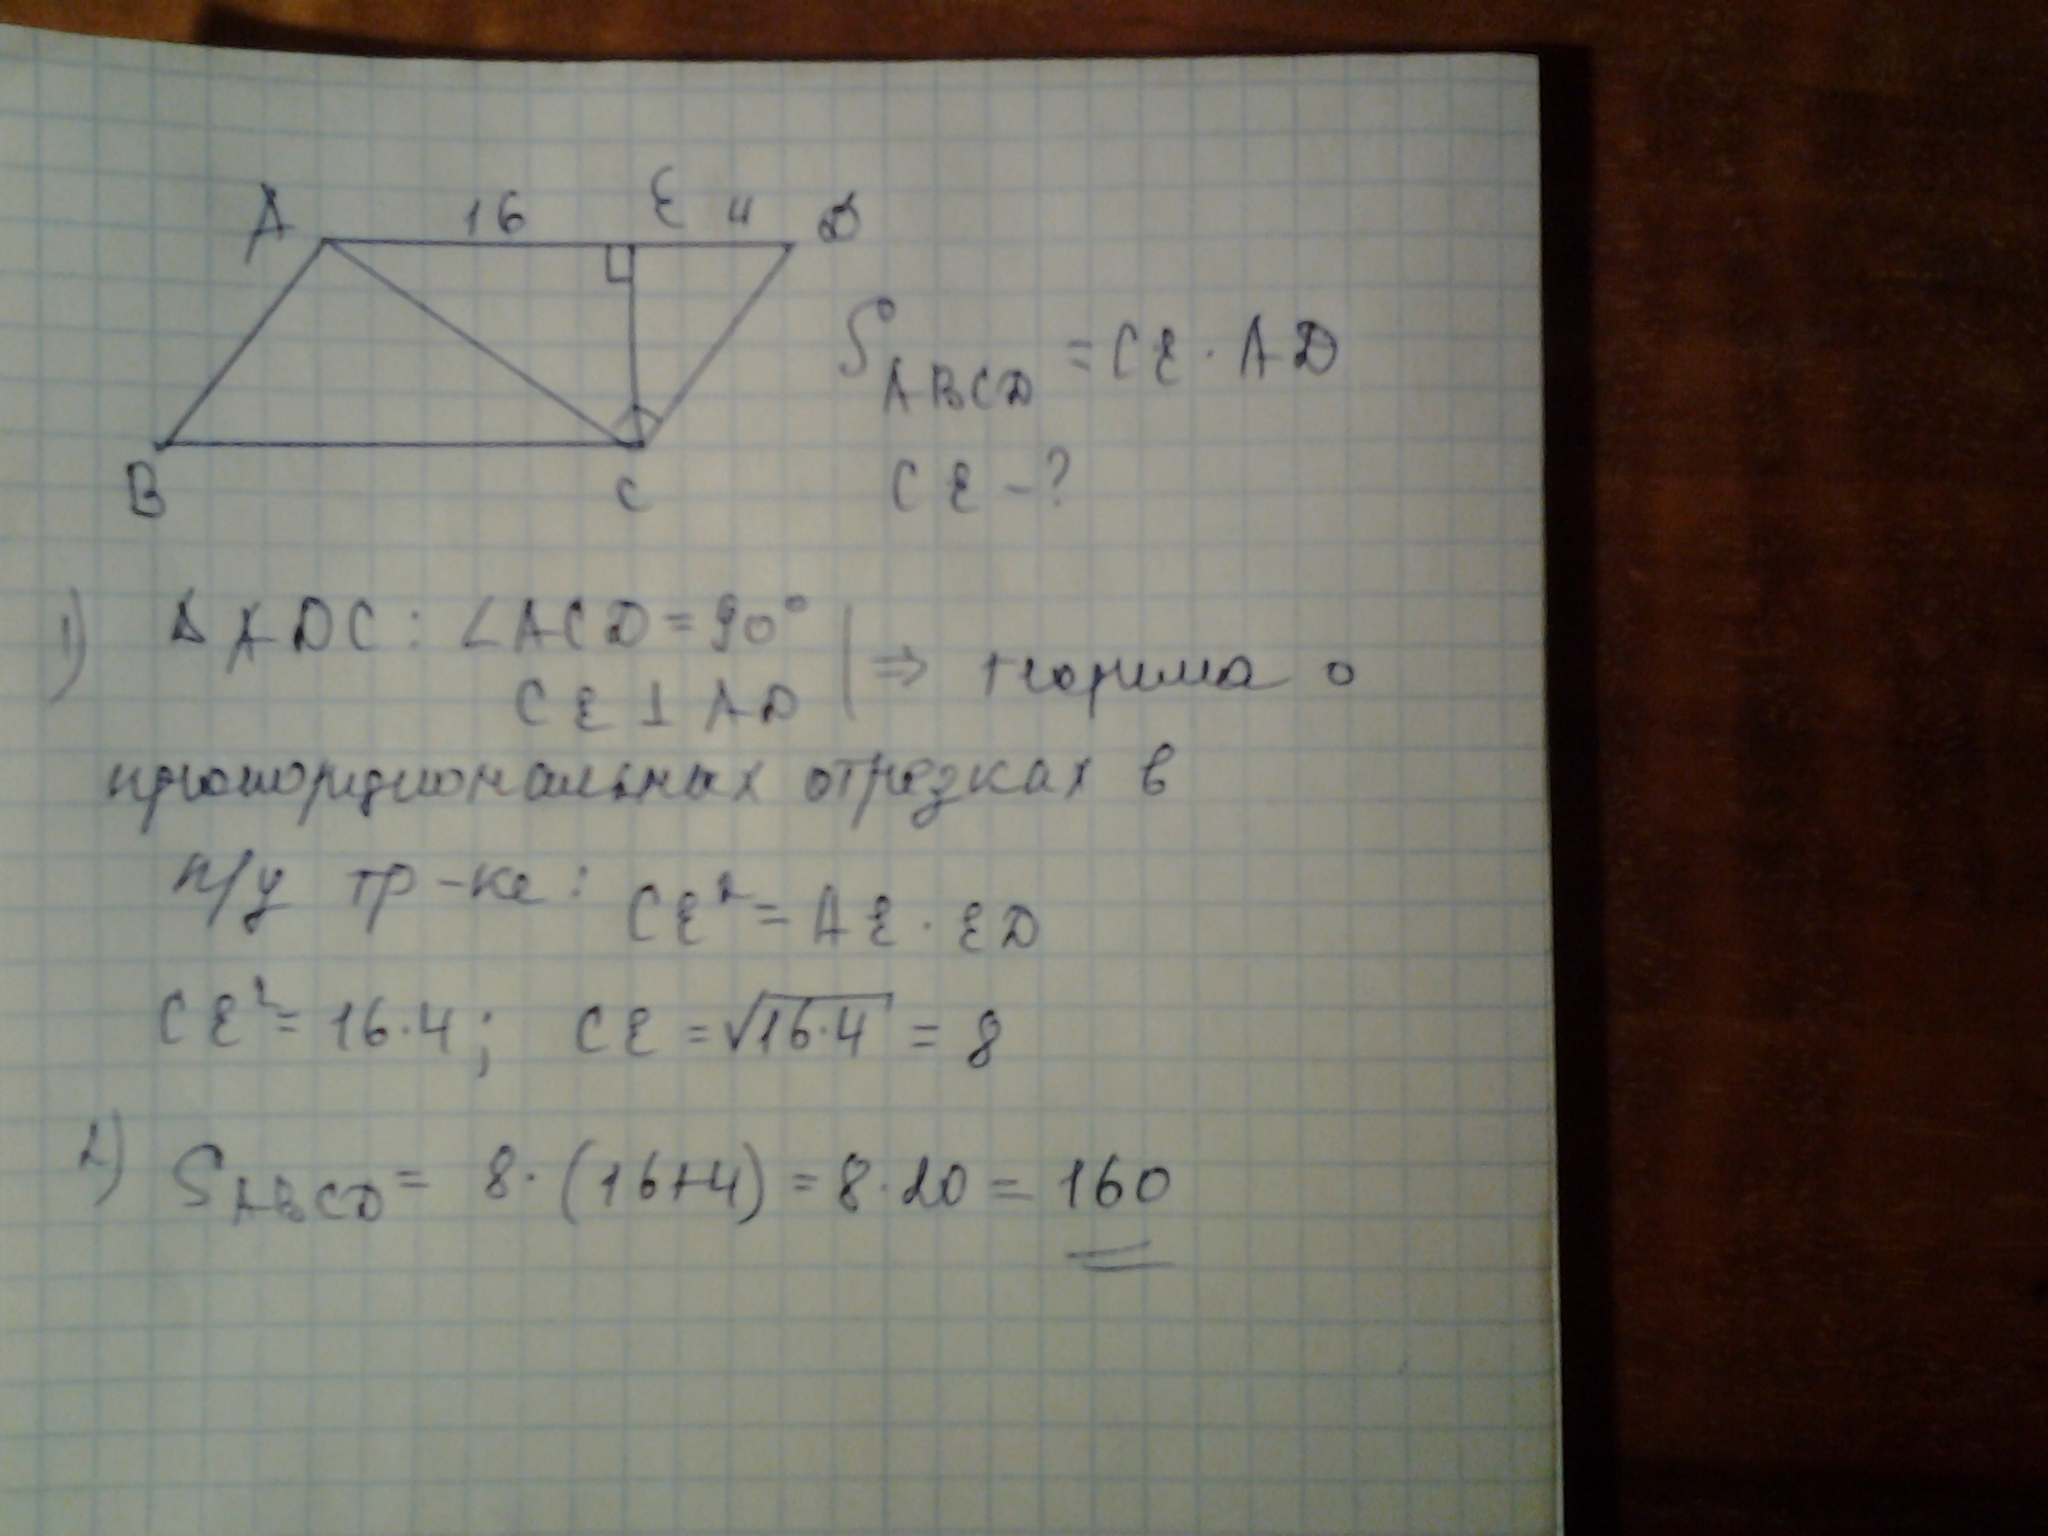 A 16 E 4 D
B C
S ABCD = CE · AD
CE - ?
1) Δ ADC : ∠ACD = 90° | ⇒ теорема о
CE ⊥ AD
пропорциональных отрезках в
п/у тр-ке : CE² = AE · ED
CE² = 16·4 ; CE = √16·4 = 8
2) S ABCD = 8 · (16+4) = 8 · 20 = 160